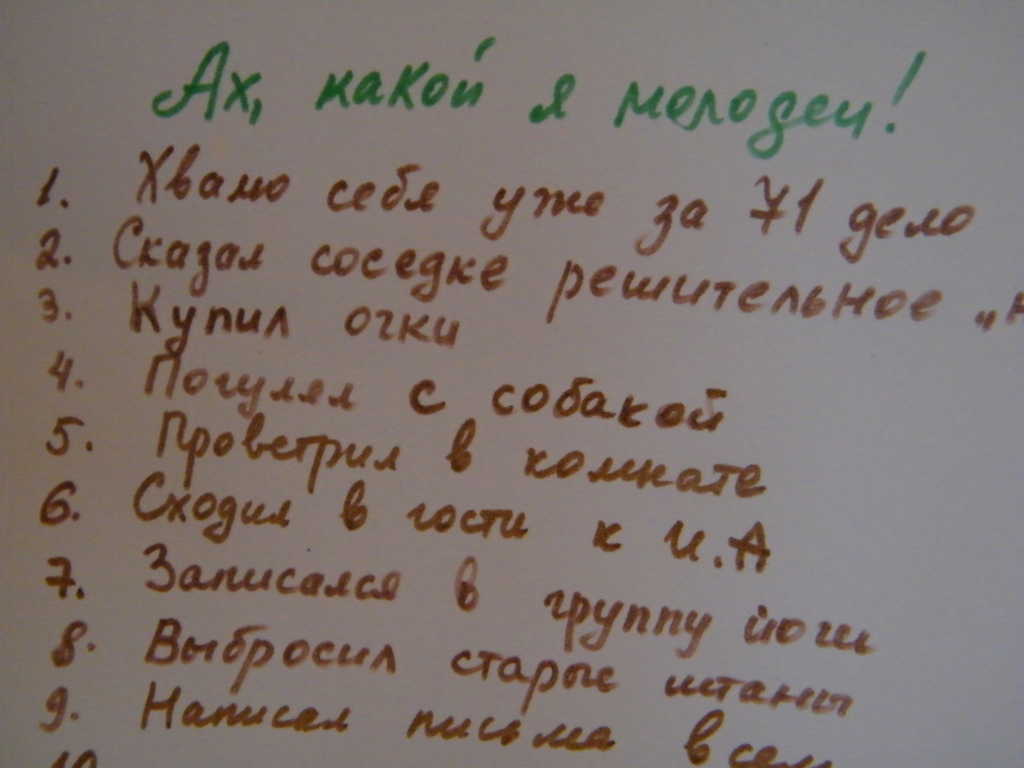 Ах, какой я молодец!
1. Хвалю себя уже за 71 дело
2. Сказал соседке решительное „н
3. Купил очки
4. Погулял с собакой
5. Проветрил в комнате
6. Сходил в гости к И.А
7. Записался в группу йоги
8. Выбросил старые штаны
9. Написал письма всем
10